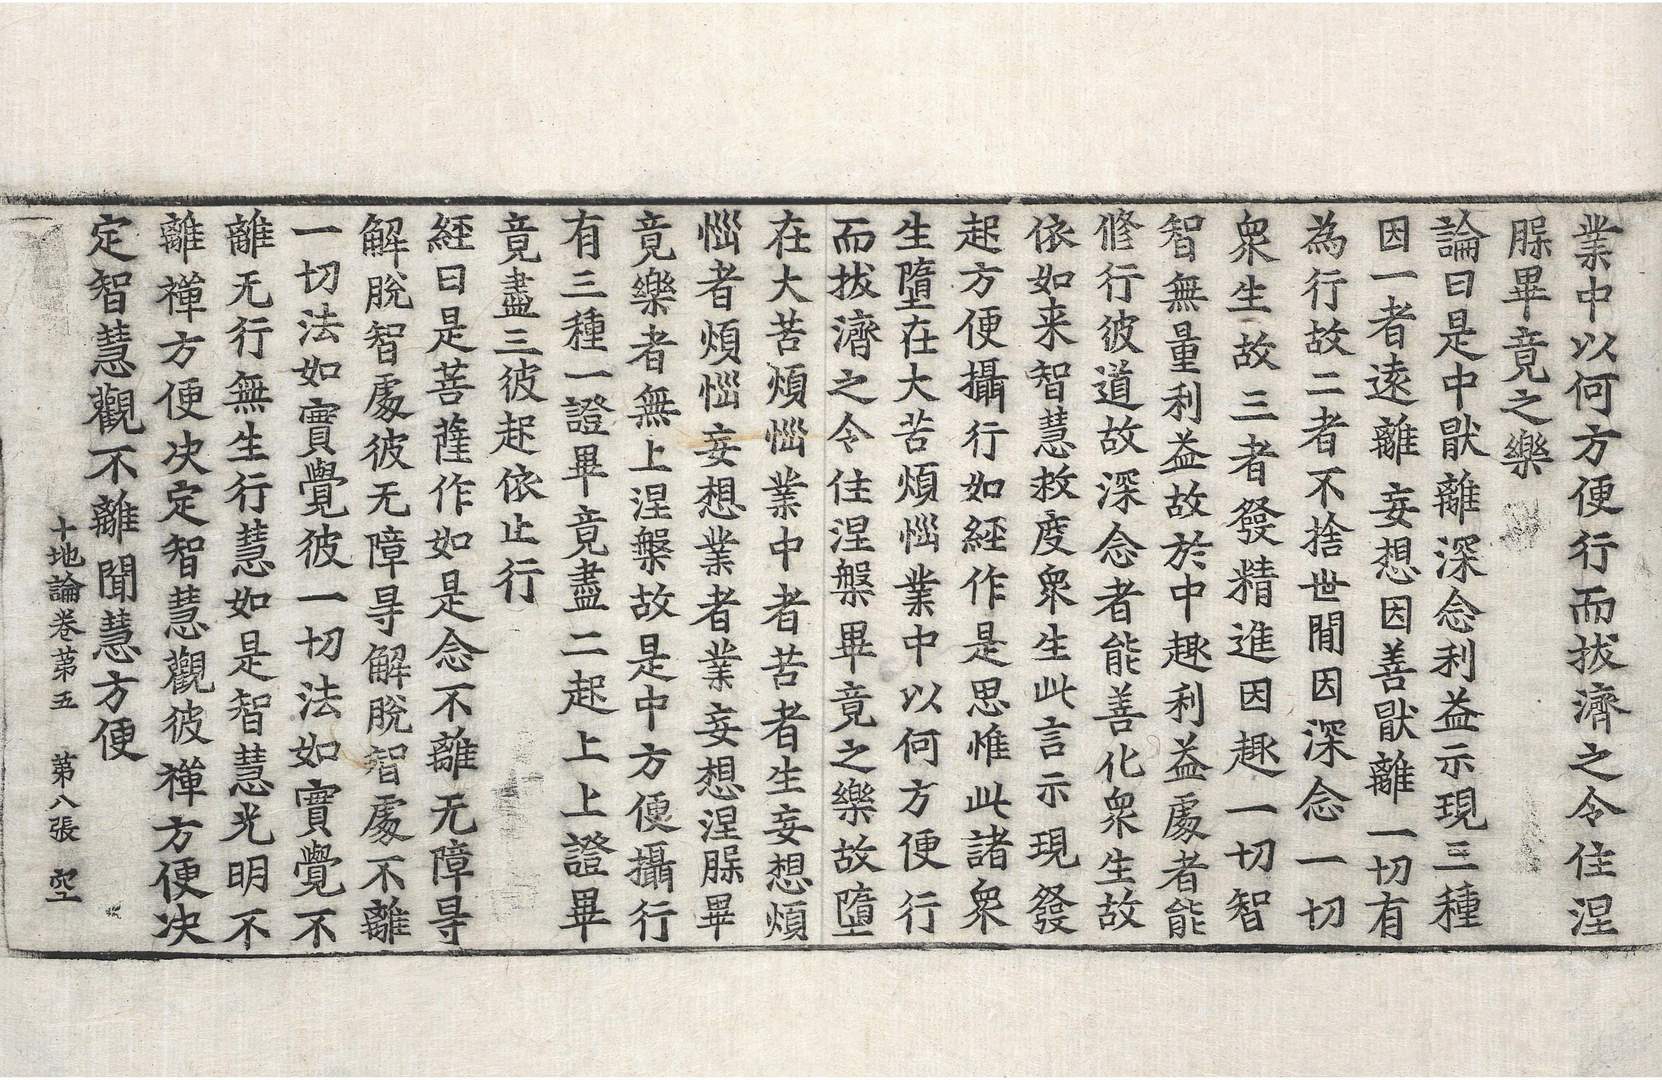 業中以何方便行而拔濟之令住涅
𦝫畢竟之樂
論曰是中猒離深念利益示現三種
因一者遠離妄想因善猒離一切有
為行故二者不捨世閒因深念一切
衆生故三者發精進因趣一切智
智無量利益故於中趣利益處者能
修行彼道故深念者能善化衆生故
依如来智慧救度衆生此言示現發
起方便攝行如經作是思惟此諸衆
生墮在大苦煩惱業中以何方便行
而拔濟之令住涅槃畢竟之樂故墮
在大苦煩惱業中者苦者生妄想煩
惱者煩惱妄想業者業妄想涅𦝫畢
竟樂者無上涅槃故是中方便攝行
有三種一證畢竟盡二起上上證畢
竟盡三彼起依止行
經曰是菩薩作如是念不離无障㝵
解脫智處彼无障㝵解脫智處不離
一切法如實覺彼一切法如實覺不
離无行無生行慧如是智慧光明不
離禪方便决定智慧觀彼禪方便决
定智慧觀不離聞慧方便
十地論卷苐五 第八張 空